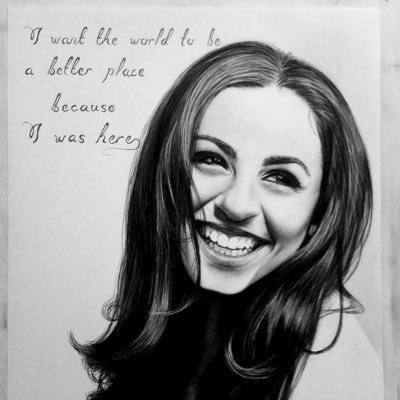 I want the world to be
a better place
because
I was here